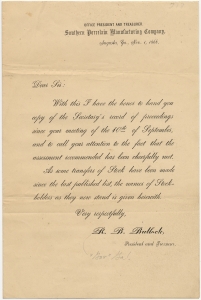 OFFICE PRESIDENT AND TREASURER
Southern Porcelain Manufacturing Company,
Augusta, Ga., Nov. 1, 186
Dear Sir:
With this I have the honor to hand you
copy of the Secretary's record of proceedings
since your meeting of the 10th of September,
and to call your attention to the fact that the
assessment recommended has been cheerfully met.
As some transfers of Stock have been made
since the last published list, the names of Stock-
holders as they now stand is given herewith.
Very respectfully,
R. B. Bullock,
President and Treasurer.